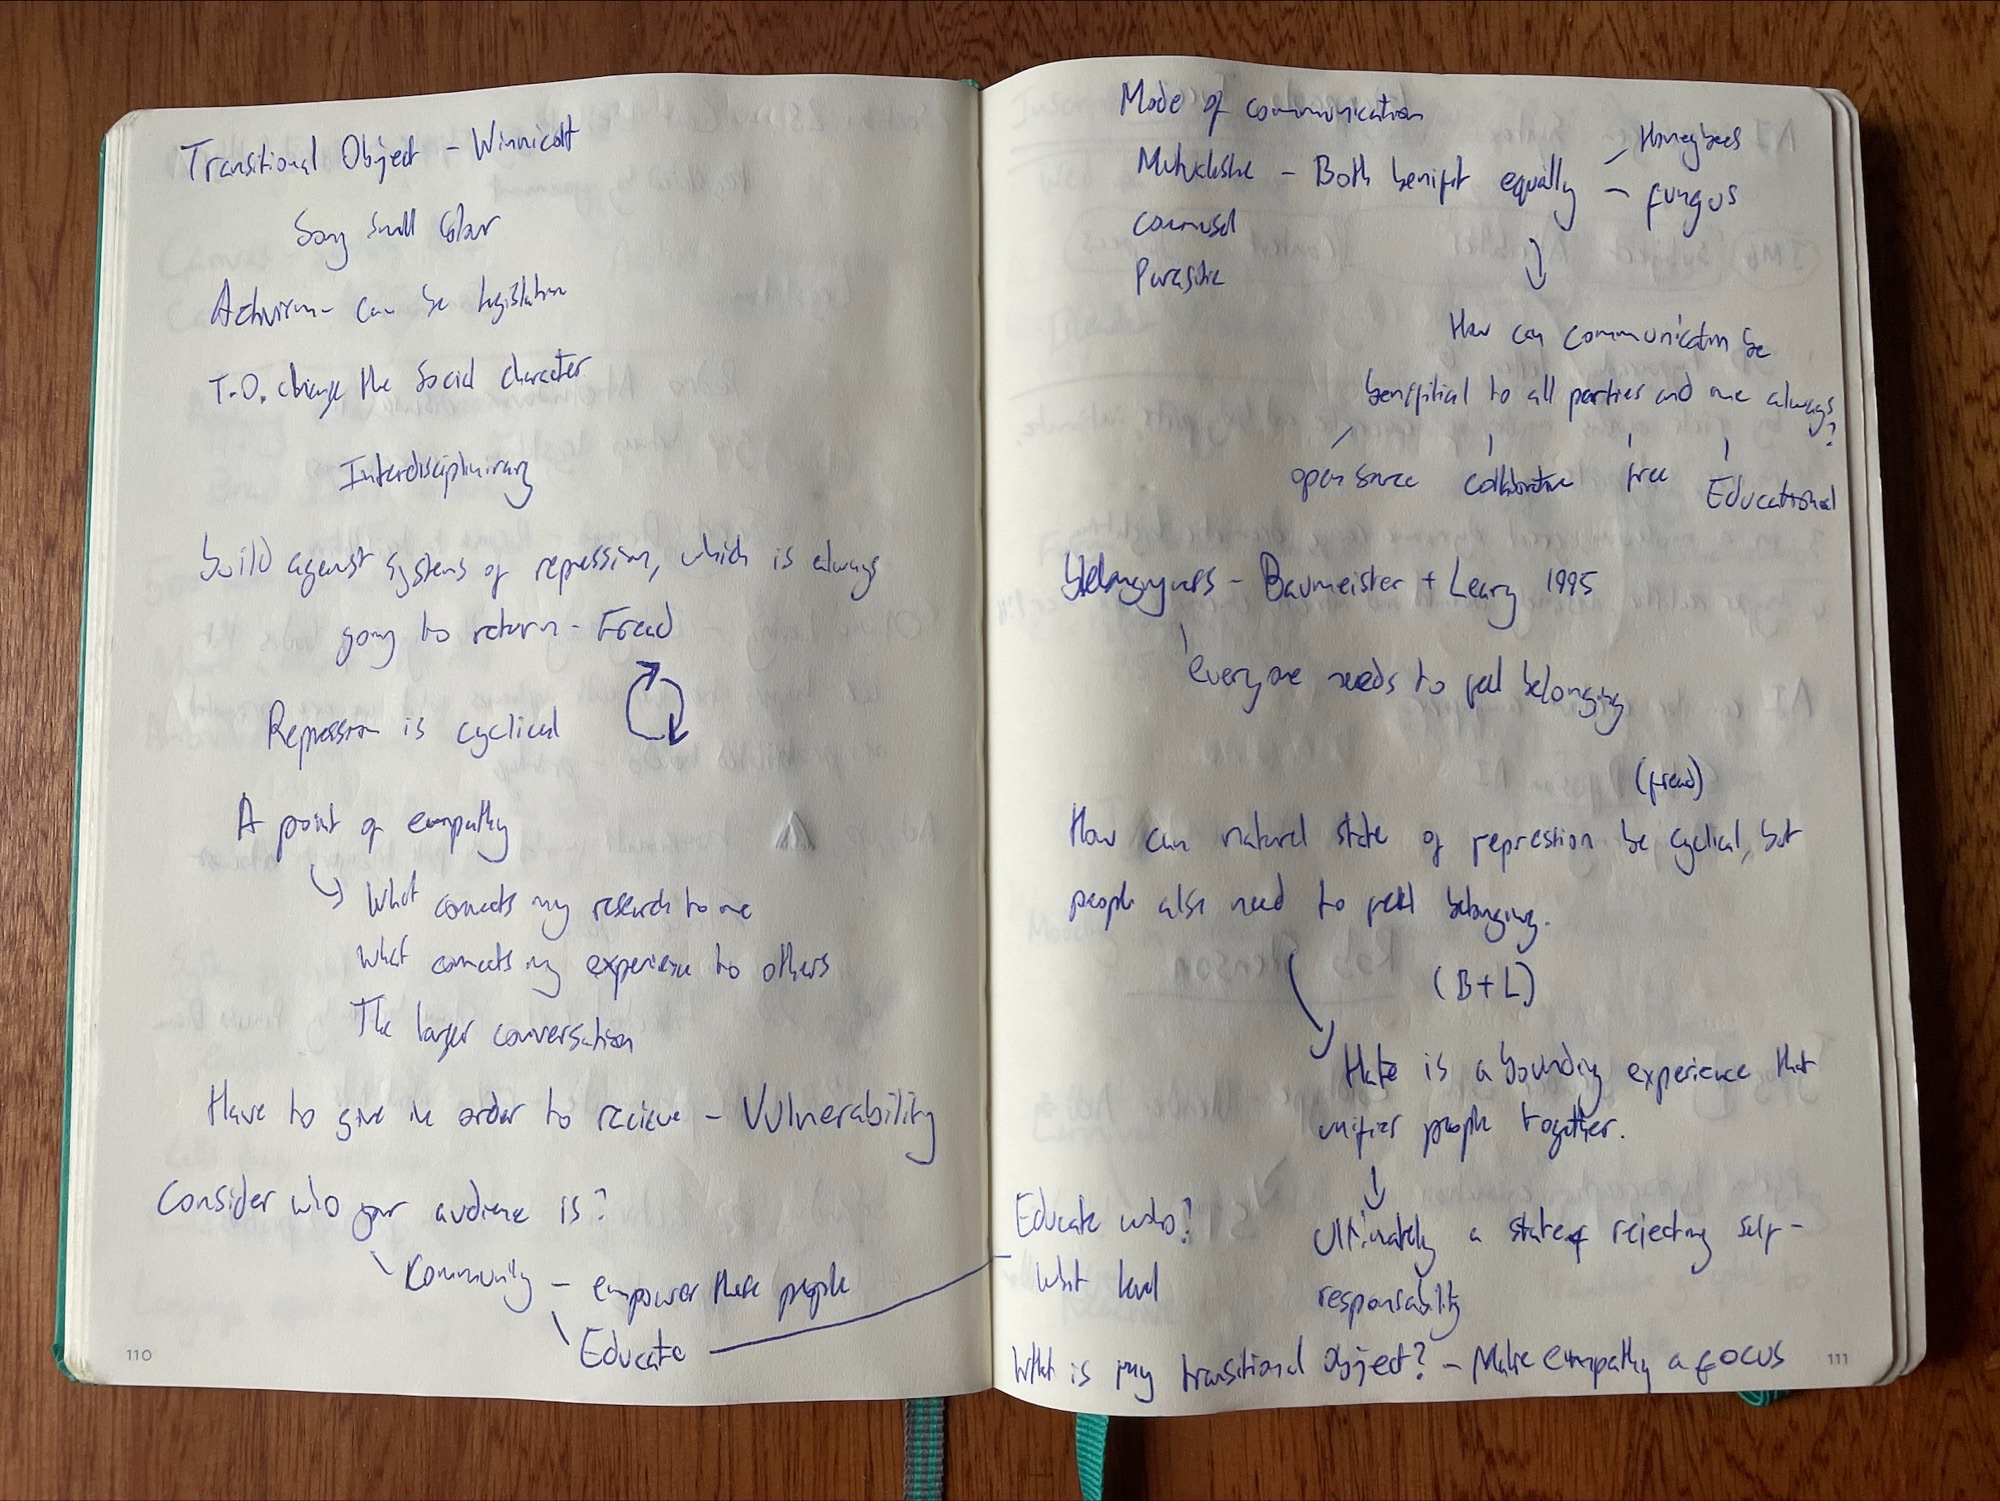 Transitional Object - Winnicott
Song Small
Activism - can be legislation
T.O. change the social character
Interdisciplinary
build against systems of repression, which is always
going to return - Freud
Repression is cyclical
A point of empathy
What connects my research to me
What connects my experience to others
The larger conversation
Have to give in order to recieve - Vulnerability
Consider who your audience is?
Community - empower these people
Educate
110
Mode of communication
Both benifit equally - Honeybees
- fungus
Parasitic
How can communication be
benifitial to all parties and one always?
open source collaborative free Educational
Belongyness - Baumeister + Leary 1995
everyone needs to feel belonging
(freud)
How can natural state of repression be cyclical, but
people also need to feel belonging.
(B+L)
Hate is a bounding experience that
unifies people together.
Ultimately a state of rejecting self-
responsability
Educate who?
What level
What is my transitional object? - Make empathy a focus
111